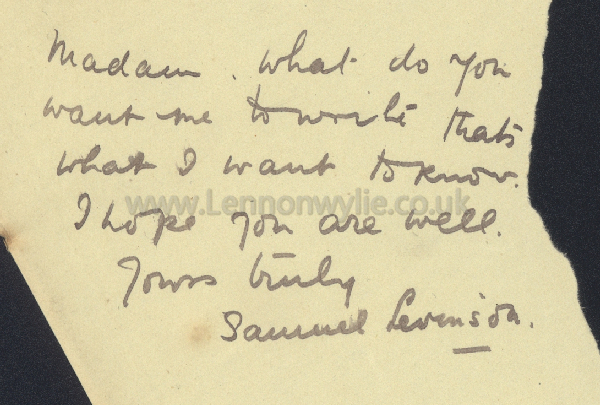 Madam. what do you
want me to write thats
what I want to know.
www.Lennonwylie.co.uk
I hope you are well.
Yours truly
Samuel Levinson.